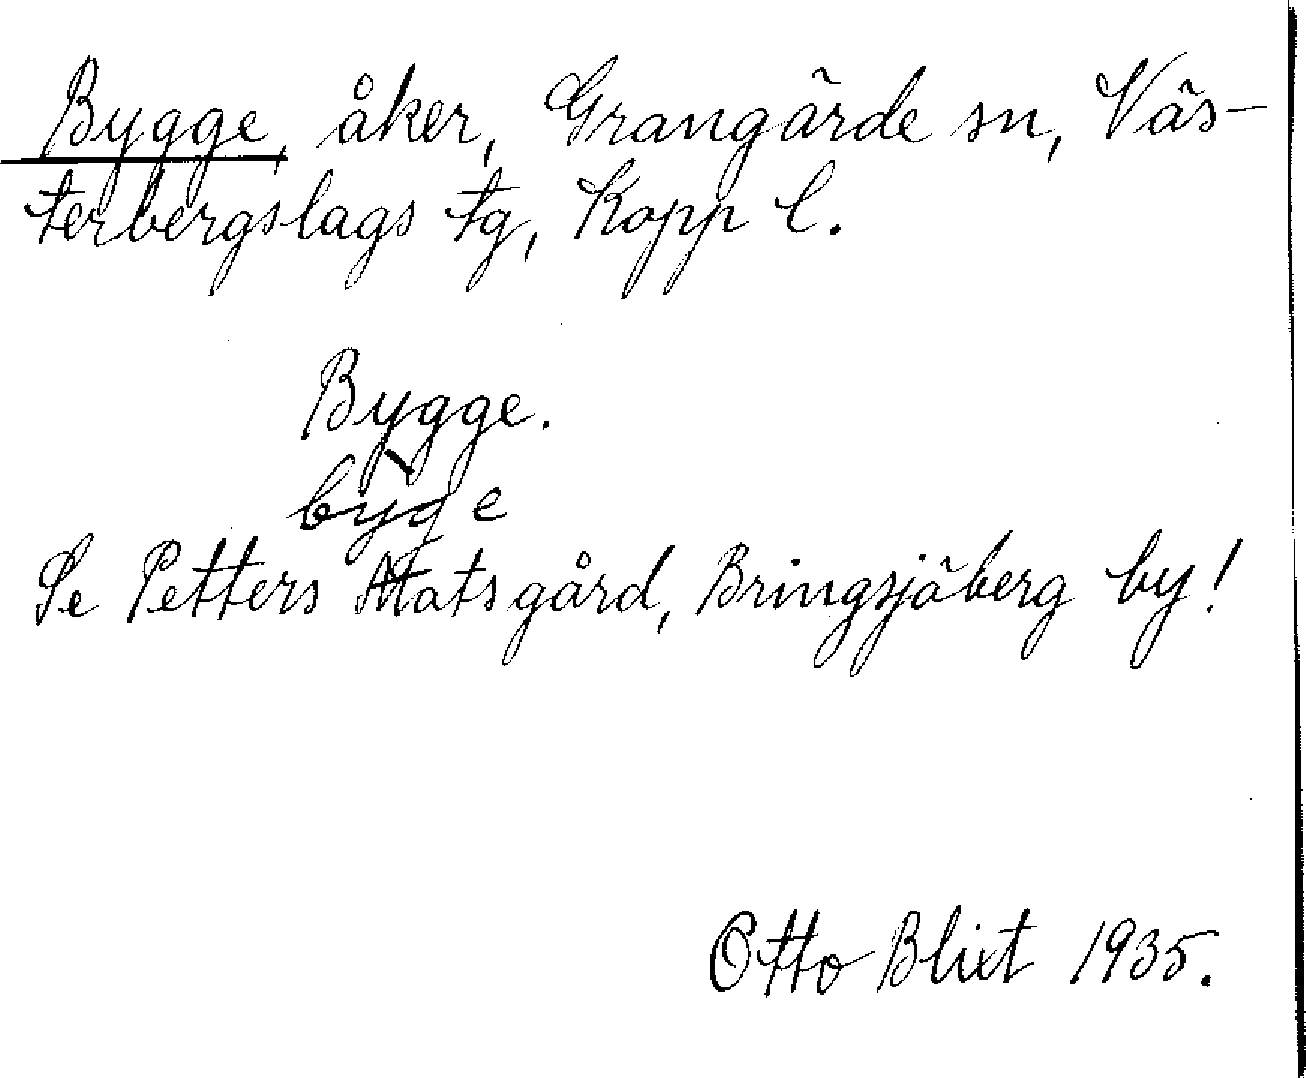 Bygge, åker, Grangärde sn, Väs-
terbergslags tg, Kopp l.
Bygge.
byg̀e
Se Petters Matsgård, Bringsjöberg by!
Otto Blixt 1935.